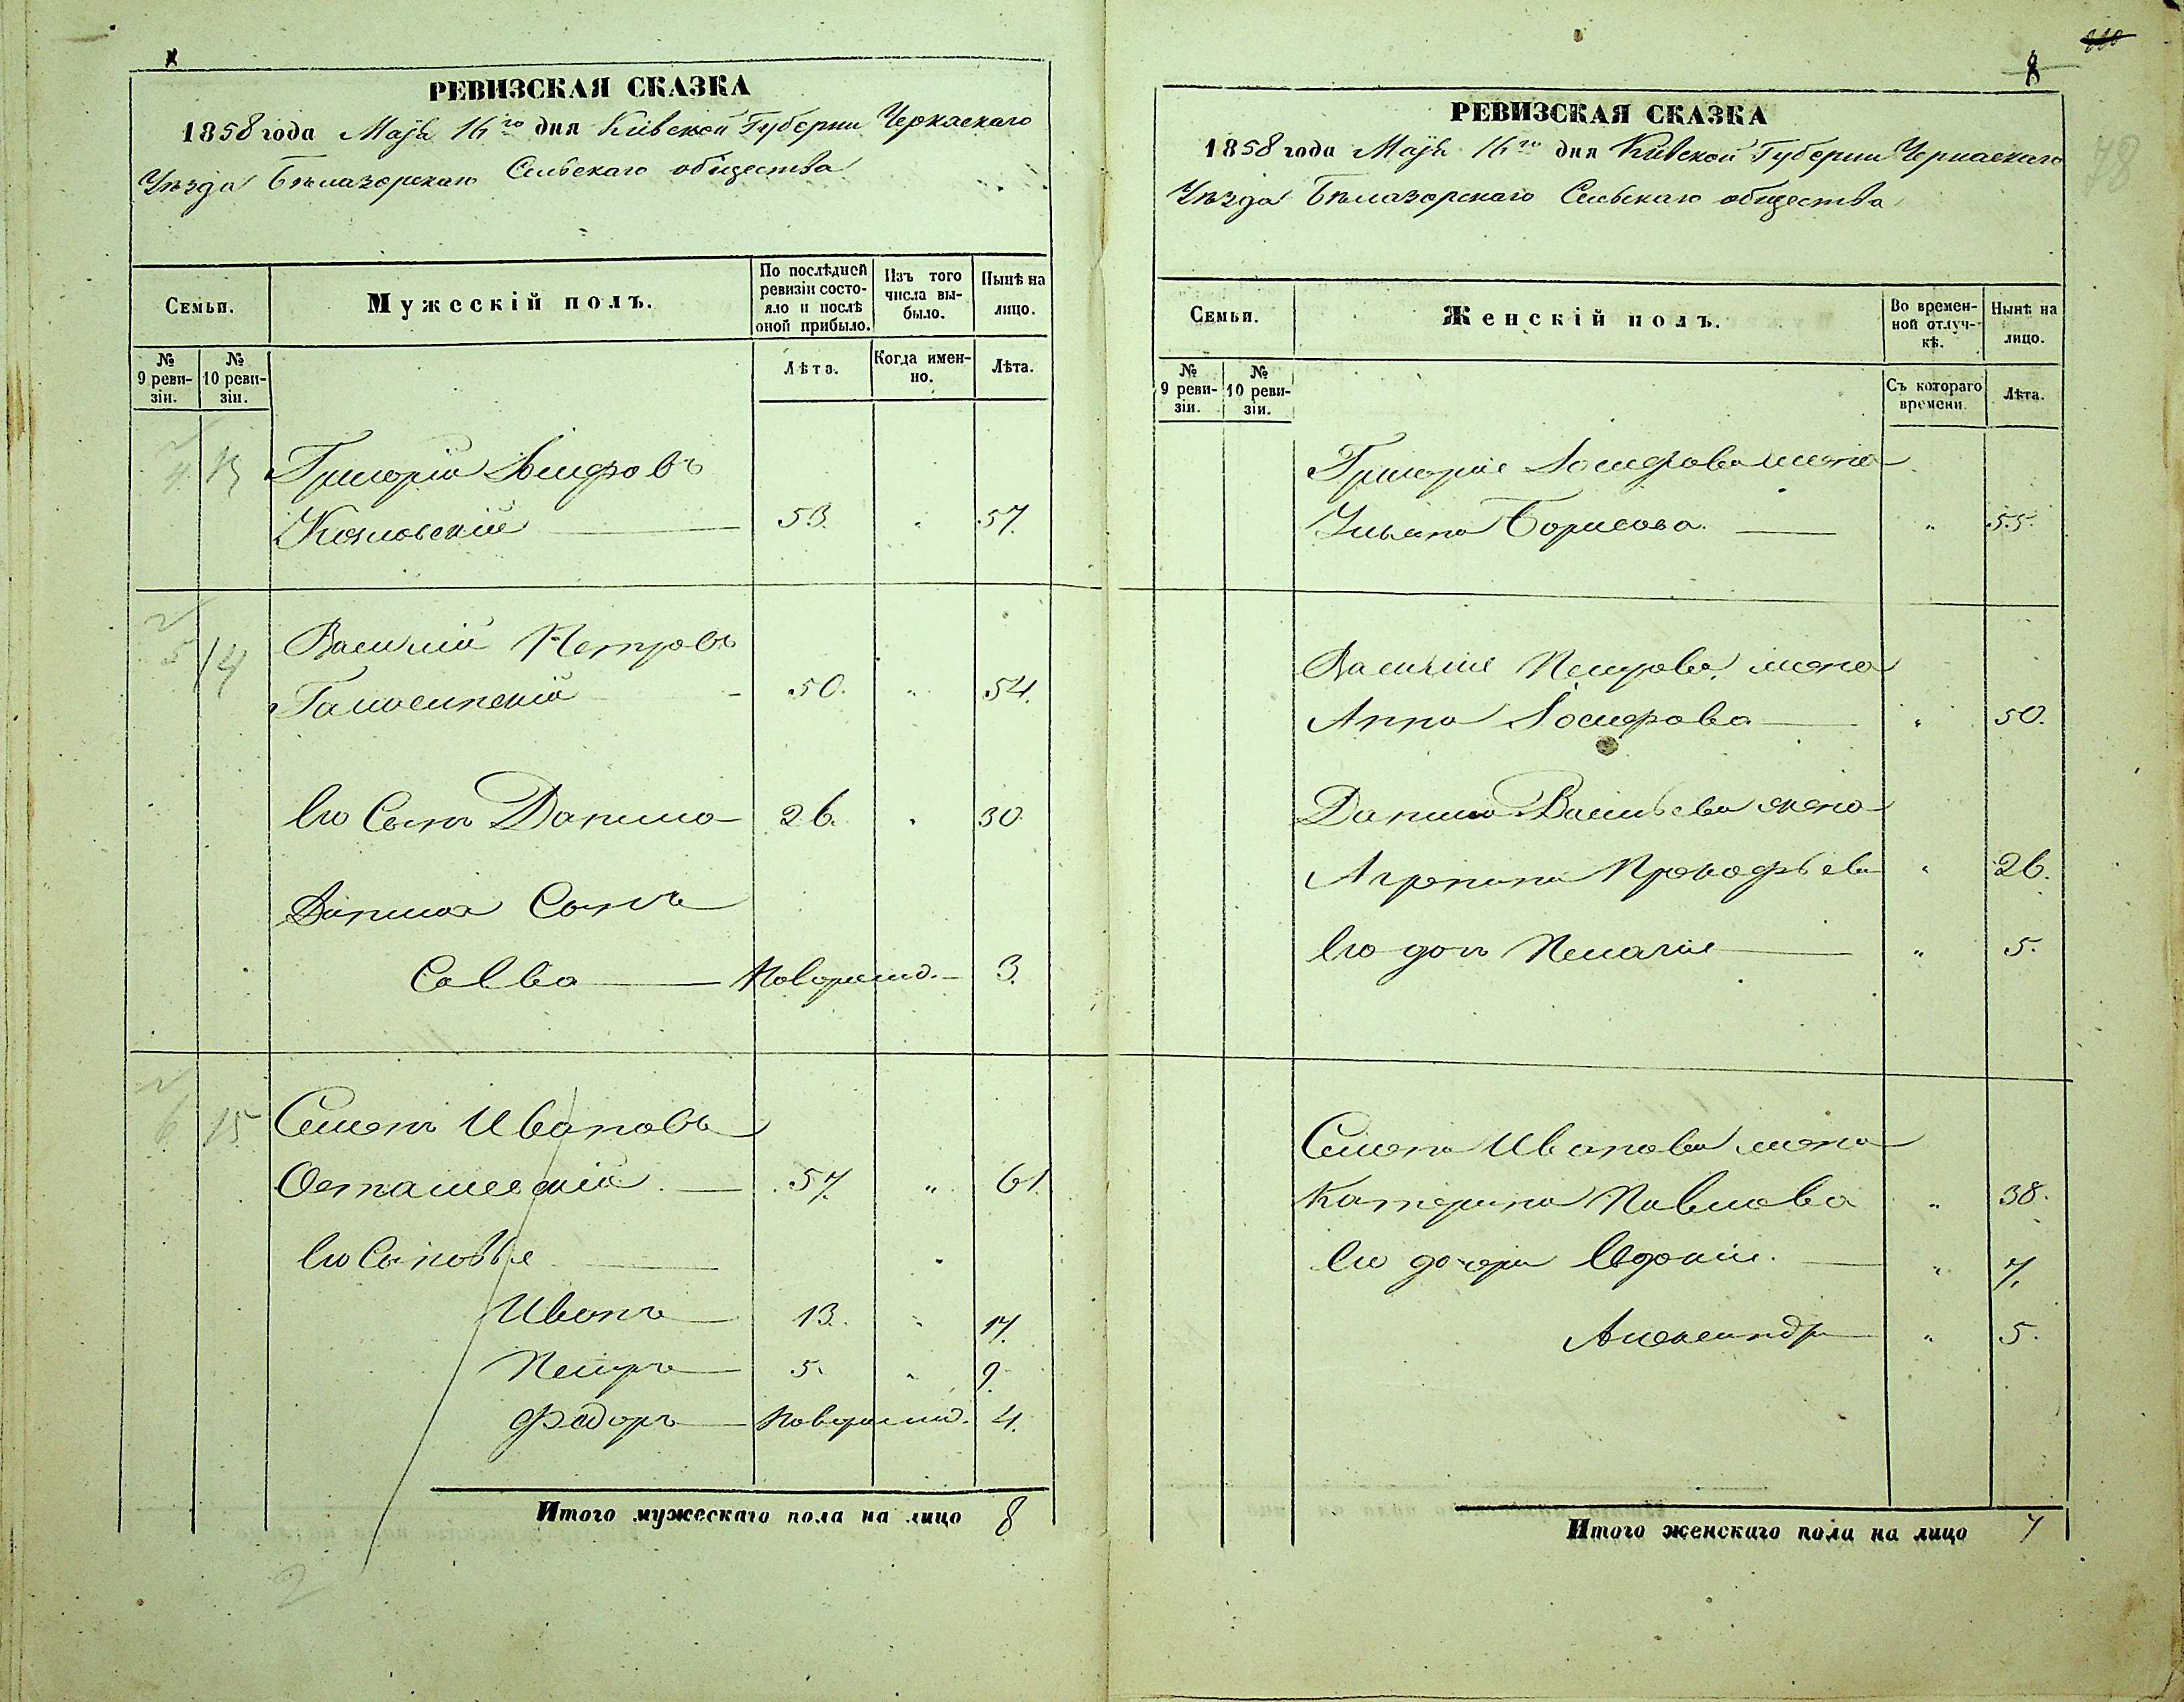 РЕВИЗСКАЯ СКАЗКА
1858 года Маія 16го дня Кіевской Губерніи Черкаскаго
Уѣзда Бѣлазорскаго Сельскаго общества
Семьи.
Мужескій полъ.
По послѣдней ревизіи состояло и послѣ оной прибыло.
Изъ того числа выбыло.
Нынѣ на лицо.
№ 9 ревизіи.
№ 10 ревизіи.
Лѣта.
Когда именно.
Лѣта.
4 13 Григорій Іосифовъ
Козловскій 53. „ 57.
5 14 Василій Петровъ
50. „ 54.
Его Сынъ Данило 26. „ 30.
Данила Сынъ
Савва Новорожд. 3.
6 15 Семенъ Ивановъ
Осташевскій 57. „ 61.
Его Сыновья „
Иванъ 13. „ 17.
Петръ 5. „ 9.
Федоръ Новорожд. 4.
Итого мужескаго пола на лицо 8
8
78
РЕВИЗСКАЯ СКАЗКА
1858 года Маія 16го дня Кіевской Губерніи Черкаскаго
Уѣзда Бѣлазорскаго Сельскаго общества
Семьи.
Женскій полъ.
Во временной отлучкѣ.
Нынѣ на лицо.
№ 9 ревизіи.
№ 10 ревизіи.
Съ котораго времени.
Лѣта.
Григорія Іосифова жена
Ульяна Борисова. „ 55.
Василія Петрова жена
Анна Іосифова „ 50.
Данила Васильева жена
Агрепина Прокофьева „ 26.
Его дочь Пелагія „ 5.
Семена Иванова жена
Катерина Павлова „ 38.
Его дочери Евдокія. „ 7.
Александра „ 5.
Итого женскаго пола на лицо 7